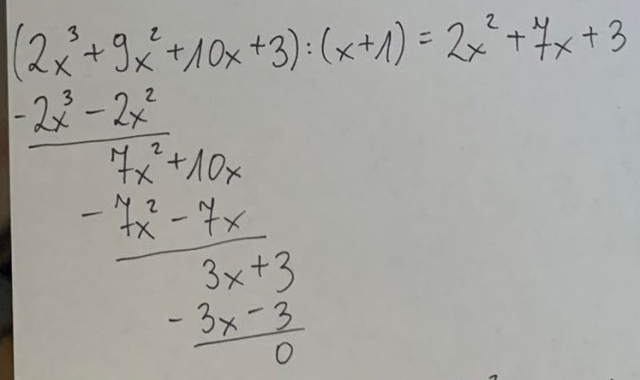 (2x³+9x²+10x+3):(x+1)=2x²+7x+3
-2x³-2x²
7x²+10x
-7x²-7x
3x+3
-3x-3
0